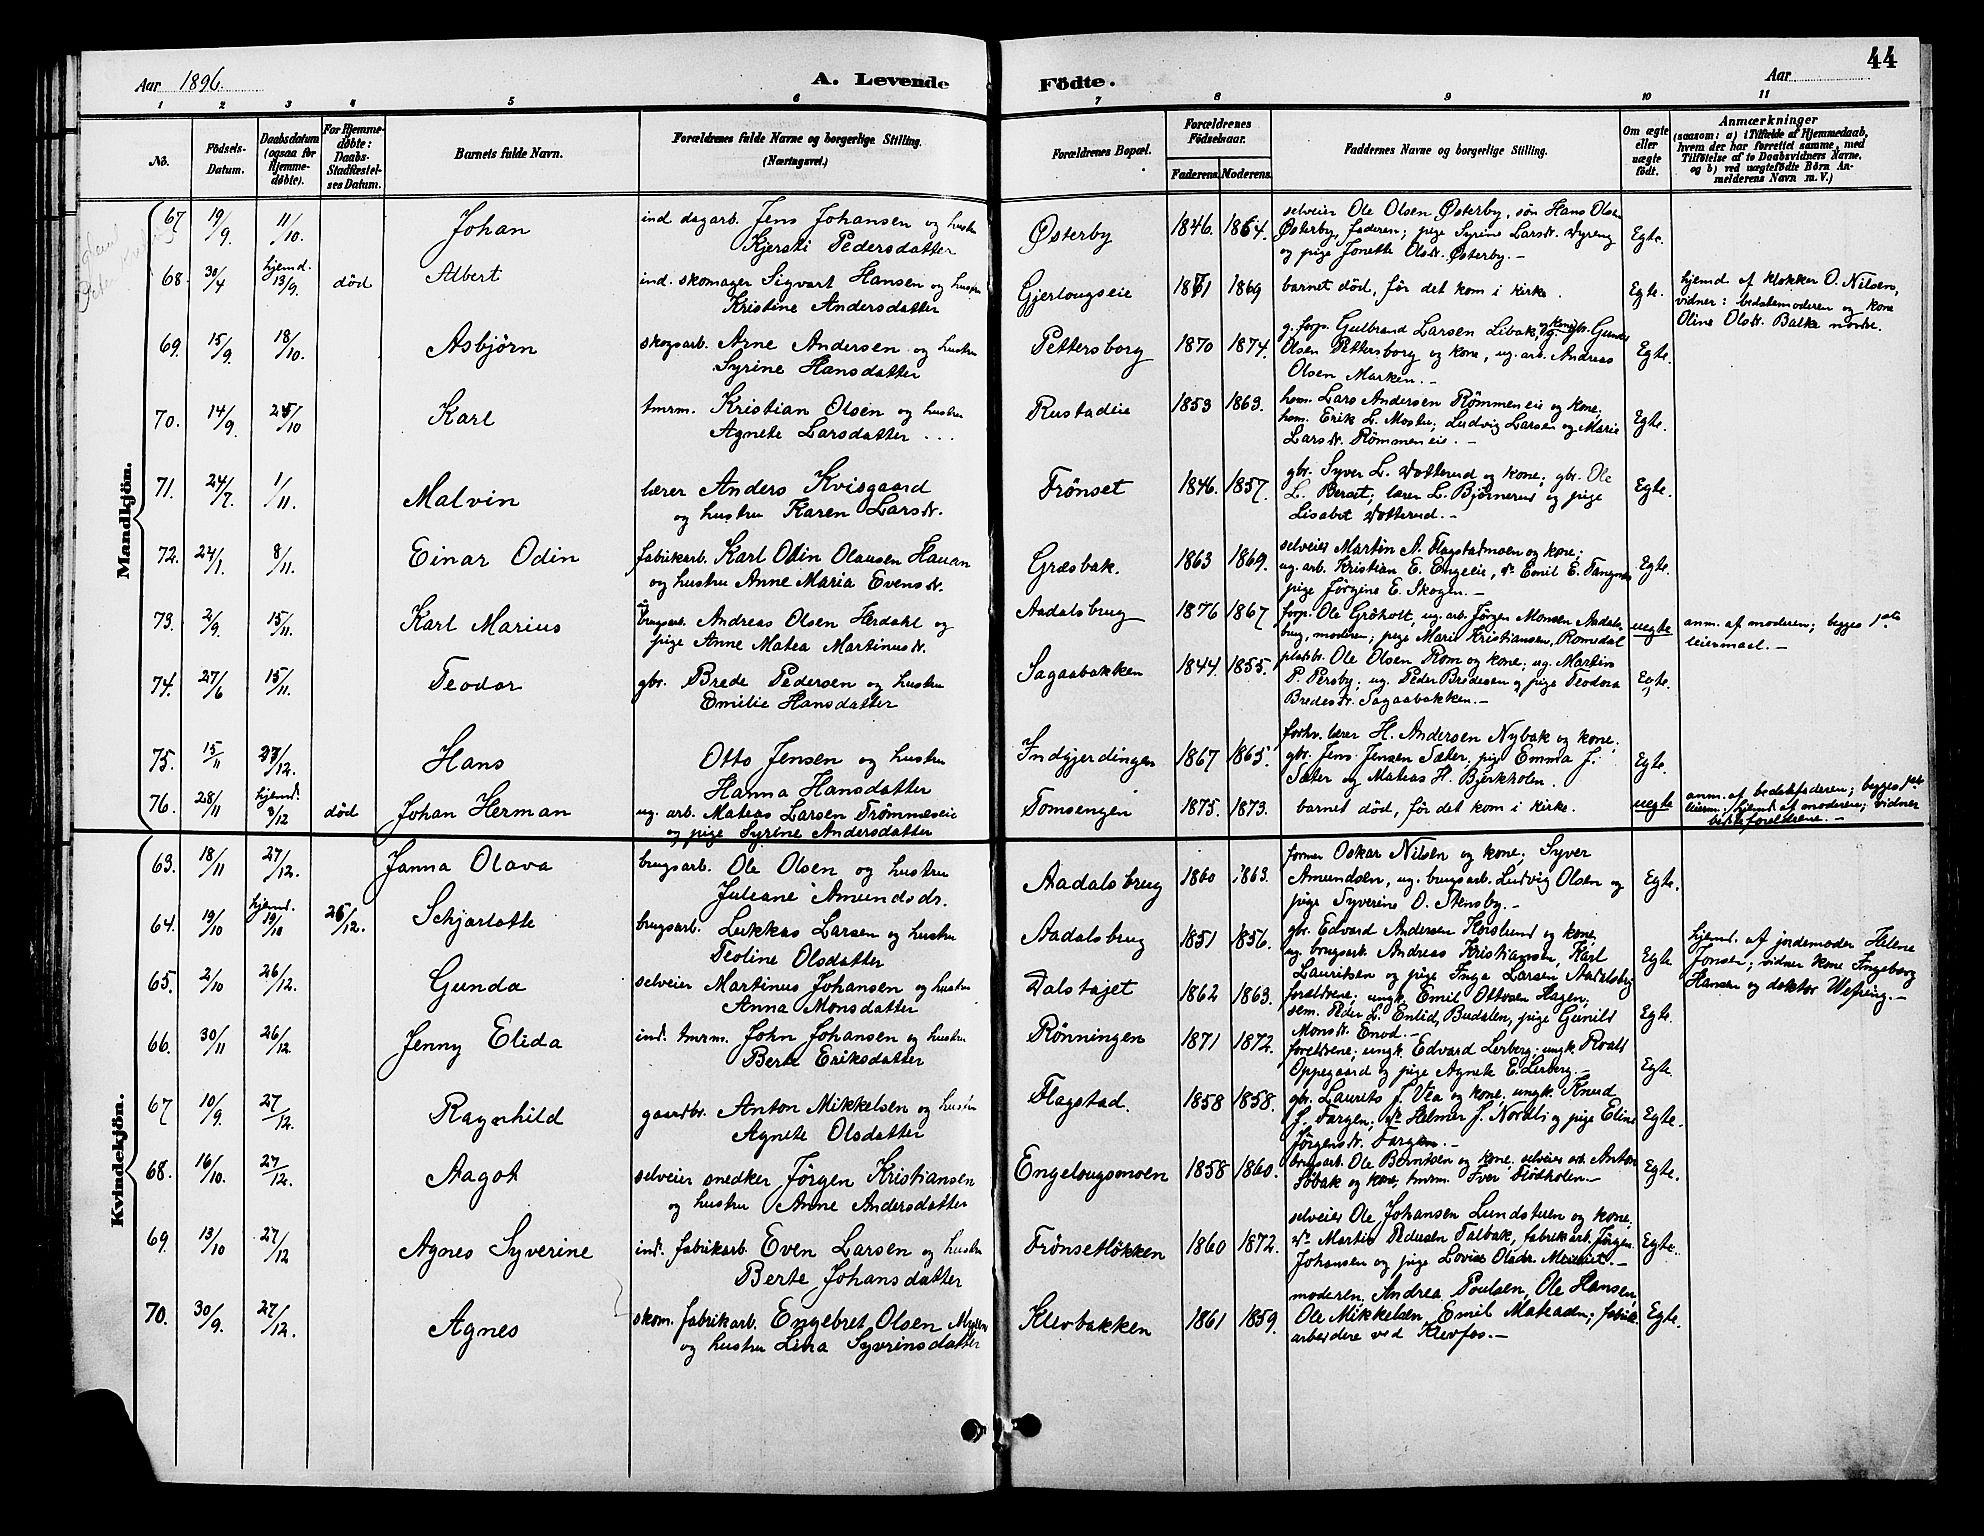 44
Aar 1896.
A. Levende
Födte.
Aar
1 2 3 4 5 6 7 8 9 10 11
No.
Födsels-Datum.
Daabsdatum (ogsaa for Hjemme-døbte).
For Hjemme-døbte: Daabs-Stadfæstelses Datum.
Barnets fulde Navn.
Forældrenes fulde Navne og borgerlige Stilling. (Næringsvei.)
Forældrenes Bopæl.
Forældrenes Födselsaar.
Faderens. Moderens.
Faddernes Navne og borgerlige Stilling.
Om ægte eller uægte födt.
Anmærkninger
(saasom: a) i Tilfælde af Hjemmedaab, hvem der har forrettet samme, med Tilföielse af to Daabsvidners Navne, og b) ved uægtefödte Börn Anmelderens Navn m. V.)
Mandkjön.
67 19/9 11/10. Johan
ind dagarb. Jens Johansen og hustru
Kjersti Pedersdatter
Østerby 1846. 1854.
selveier Ole Olsen Østerby, søn Hans Olsen
Østerby, faderen; pige Syrine Larsdr. Dyreng
og pige Jonette Olsdr. Østerby.—
Egte.
68. 30/4 hjemd. 13/9. død Albert
ind. skomager Sigvart Hansen og hustru
Kristine Andersdatter
Gjerlougseie 1871 1869
barnet død, før det kom i kirke.
Egte.
hjemd. af klokker O. Nilsen,
vidner: bedstemoderen og kone
Oline Olsdr. Balke nordre.
69. 15/9. 18/10. Asbjørn
skogsarb. Arne Andersen og hustru
Syrine Hansdatter
Pettersborg 1870 1874.
g. forp. Gulbrand Larsen Libak, og kone,
Olsen Pettersborg og kone, ug. arb. Andreas
Olsen Marken.—
Egte.
70. 14/9. 25/10 Karl
tmrm. Kristian Olsen og hustru
Agnete Larsdatter ...
Rustadeie 1853 1863.
hom. Lars Andersen Rømmeneie og kone;
hom. Erik L. Mostu; Ludvig Larsen og Marie
Larsdr. Rømmeneie.—
Egte.
71. 24/7. 1/11. Malvin
lærer Anders Kvisgaard
og hustru Karen Larsdr.
Frønset 1846. 1857.
gbr. Syver L. Dotterud og kone; gbr. Ole
L. Beraet; lærer L. Bjørnerud og pige
Lisabet Dotterud.—
Egte.
72. 24/1. 8/11. Einar Odin
fabrikarb. Karl Odin Olausen Hauan
og hustru Anne Maria Evensdr.
Græsbak. 1863 1869.
selveier Martin A. Flagstadmoen og kone;
ug. arb. Kristian E. Engeie, do Emil E. Tangnes
pige Jørgine E. Skogen.—
Egte.
73. 2/9. 15/11. Karl Marius
brugsarb. Andreas Olsen Hærdahl og
pige Anne Matea Martinusdr.
Aadalsbrug 1876 1867
forp. Ole Grøholt, ug. arb. Jørgen Monsen Aadals-
brug, moderen; pige Marie Kristiansen, Romedal
uegte
anm. af moderen; begges 1ste
leiermaal.—
74. 27/6 15/11. Teodor
gbr. Brede Pedersen og hustru
Emilie Hansdatter
Sagaabakken 1844 1855.
pladsbr. Ole Olsen Rom og kone; ug. Martin
P. Persby; ug. Peder Bredesen og pige Teodora
Bredesdr. Sagaabakken.—
Egte.
75. 15/11 27/12. Hans
Otto Jensen og hustru
Hanna Hansdatter
Indgjerdingen 1867 1865.
forhv. lærer H. Andersen Nybak og kone;
gbr. Jens Jensen Sæter, pige Emma J.
Sæter og Mateas H. Bjerkholen.
Egte.
76. 28/11 hjemd. 3/12 død Johan Herman
ug. arb. Mateas Larsen Frømmeseie
og pige Syrine Andersdatter
Tomsengen 1875 1873.
barnet død, før det kom i kirke.
uegte
anm. af bedstefaderen; begges 1ste
leierm./hjemd. af moderen; vidner
bedsteforeldrene.—
Kvindekjön.
63. 18/11 27/12. Janna Olava
brugsarb. Ole Olsen og hustru
Juliane Amundsdr.
Aadalsbrug 1860 1863.
former Oskar Nilsen og kone; Syver
Amundsen, ug. brugsarb. Ludvig Olsen og
pige Syverine O. Stensby.—
Egte.
64. 19/10 hjemd. 19/10 26/12. Schjarlotte
brugsarb. Lukkas Larsen og hustru
Teoline Olsdatter
Aadalsbrug 1851 1856.
gbr. Edvard Andersen Horslund og kone,
ug. brugsarb. Andreas Kristiansen, Karl
Lauritsen og pige Inga Larsen Aadalsbrg
Egte
hjemd. af jordemoder Helene
Jonsen; vidner kone Ingeborg
Hansen og doktor Wefring.—
65. 2/10 26/12. Gunda
selveier Martinus Johansen og hustru
Anna Monsdatter
Dalstøjet 1862 1863.
foreldrene; ungk. Emil Ottosen Hagen;
sem. Peder L. Enlid, Budalen, pige Gunild
Monsdr. Enod.—
Egte.
66. 30/11 26/12. Jenny Elida
ind. tmrm. John Johansen og hustru
Berte Eriksdatter
Rønningen 1871 1872.
foreldrene; ungk. Edvard Lerberg; ungk. Roald
Oppegaard og pige Agnete E. Lerberg.—
Egte.
67 10/9. 27/12. Ragnhild
gaardbr. Anton Mikkelsen og hustru
Agnete Olsdatter
Flagstad. 1858 1858.
gbr. Laurits J. Vea og kone; ungk. Knud
J. Fargen; do Helmer J. Nordli og pige Eline
Jørgensdr. Fargen.—
Egte.
68. 16/10. 27/12. Aagot
selveier snedker Jørgen Kristiansen
og hustru Anne Andersdatter
Engelougsmoen 1858 1860.
brugsarb. Ole Berntsen og kone, selveier arb. Anton
Søbak og kone, tmrm. Iver Flødholen.—
Egte.
69. 13/10 27/12 Agnes Syverine
ind. fabrikarb. Even Larsen og hustru
Berte Johansdatter
Frønsetløkken 1860 1872.
selveier Ole Johansen Lundstuen og kone;
do Martin Pedersen Talbak, fabrikarb. Jørgen
Johansen og pige Lovise Olsdr.
Egte.
70. 30/9. 27/12. Agnes
skom. fabrikarb. Engebret Olsen
og hustru Lina Syvrinsdatter
Klevbakken 1861 1859.
moderen, Andrea Poulsen, Ole Hansen,
Ole Mikkelsen, Emil Mateaden; fabrik-
arbeidere ved Klevfos.—
Egte.